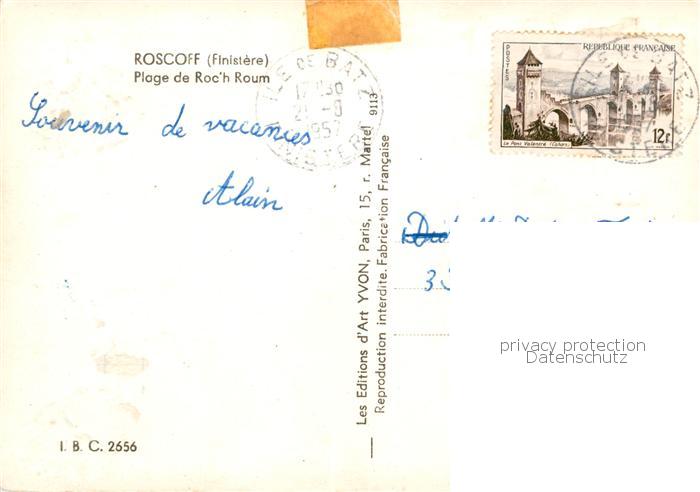 ROSCOFF (Finistère)
Plage de Roc'h Roum
ILE DE BATZ
17 30
21 -8
1957
FINISTERE
Souvenir de vacances
Alain
9113
Les Editions d'Art YVON, Paris, 15, r. Martel
Reproduction interdite. Fabrication Française
POSTES
REPUBLIQUE FRANÇAISE
12F
Le Pont Valentré (Cahors)
3
privacy protection
Datenschutz
I. B. C. 2656